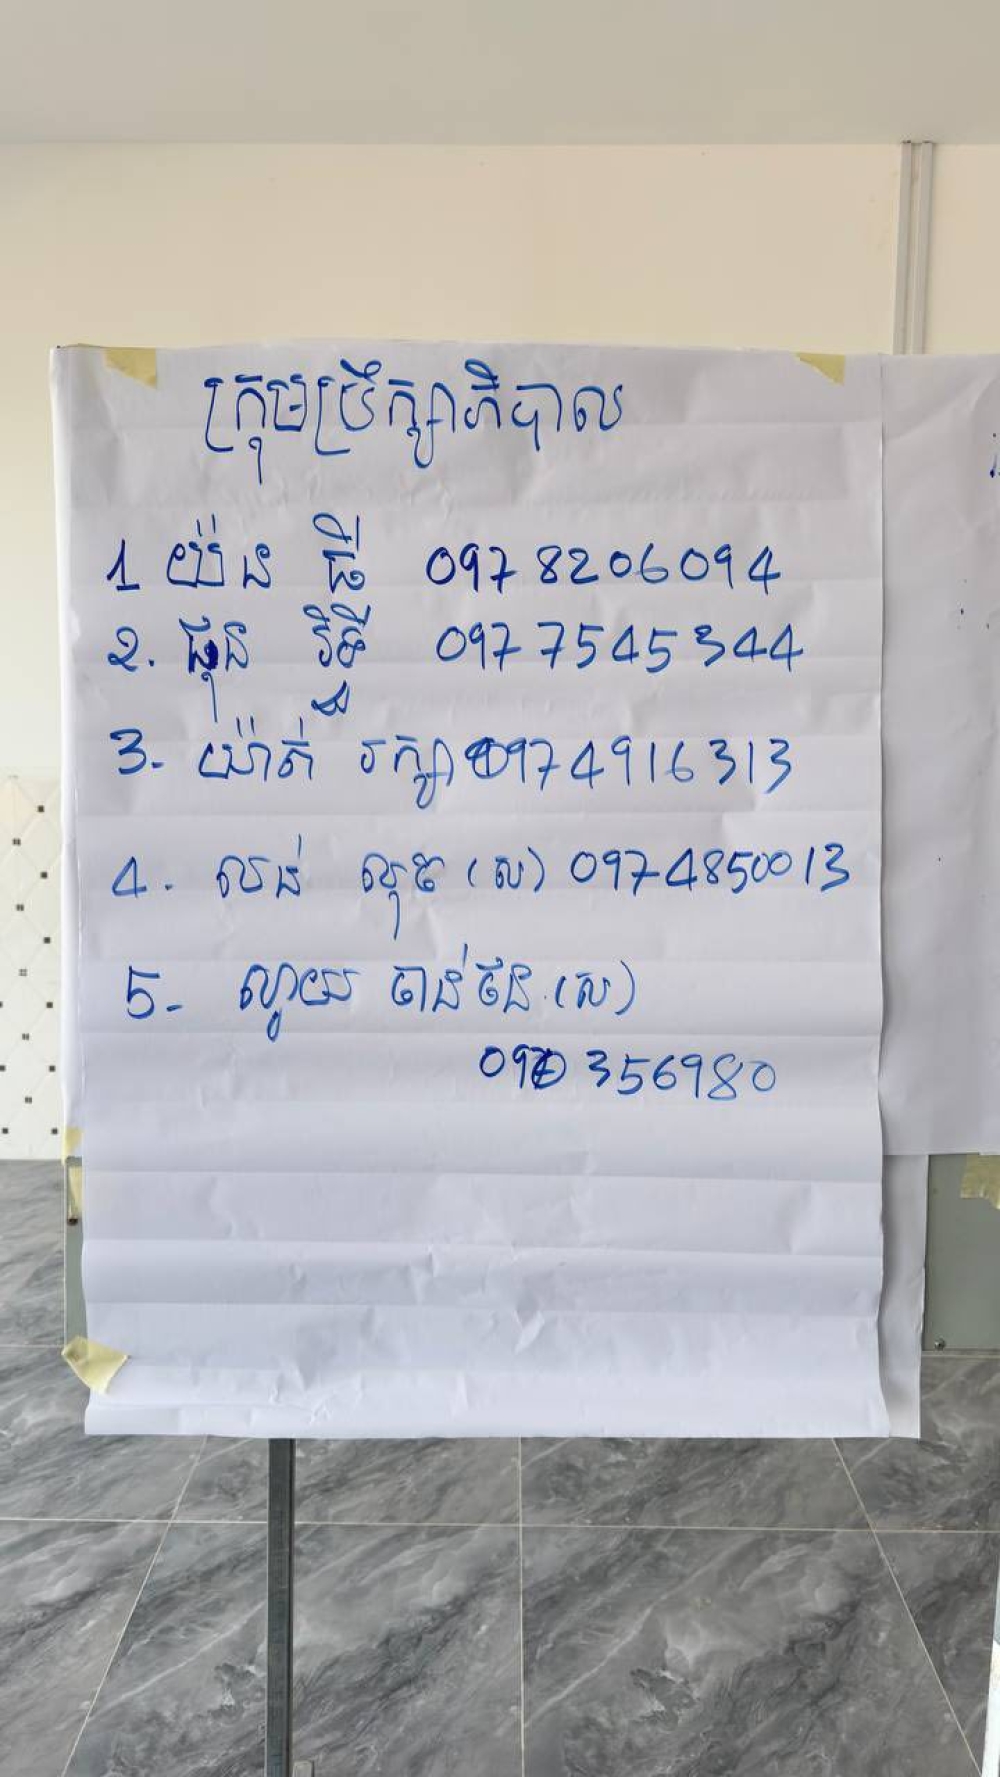 ក្រុមប្រឹក្សាភិបាល
1 យ៉ន ធី 0978206094
2. ផុន រិទ្ធី 0977545344
3. យ៉ាត់ រក្សា 0974916313
4. លន់ លុច (ស) 0974850013
5. ល្វាយ ចាន់ថន (ស)
0970356980